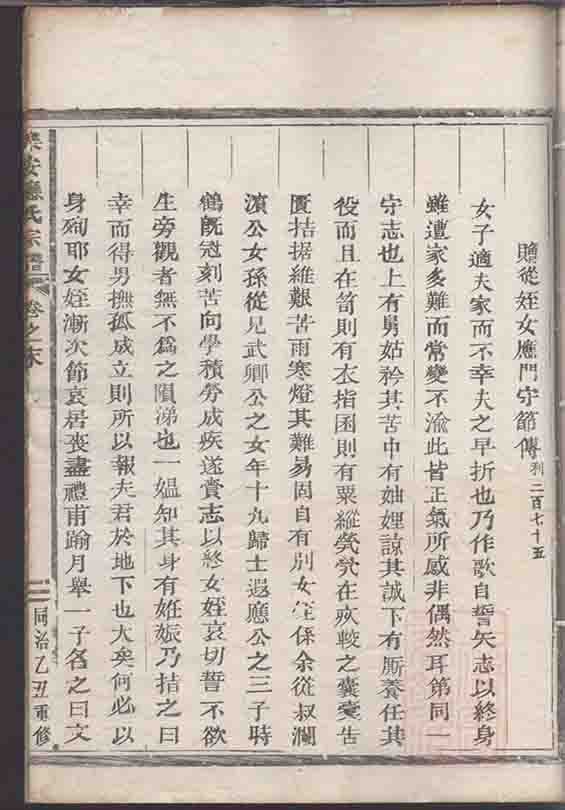 贈從姪女應門守節傳 列二百七十五
女子適夫家而不幸夫之早折也乃作歌自誓矢志以終身
雖遭家多難而常變不渝此皆正氣所感非偶然耳第同一
守志也上有舅姑矜其苦中有妯娌諒其誠下有厮養任其
役而且在笥則有衣指囷則有粟縱煢煢在疚較之囊槖告
匱拮据維艱苦雨寒燈其難易固自有別女姪係余從叔瀾
濵公女孫從兄武卿公之女年十九歸士遐應公之三子時
鶴旣冠刻苦向學積勞成疾遂賫志以終女姪哀切誓不欲
生旁觀者無不為之隕涕也一媼知其身有姙娠乃拮之曰
幸而得男撫孤成立則所以報夫君於地下也大矣何必以
身殉耶女姪漸次節哀居喪盡禮甫踰月舉一子名之曰文
樂安應氏宗譜 卷之末 同治乙丑重修